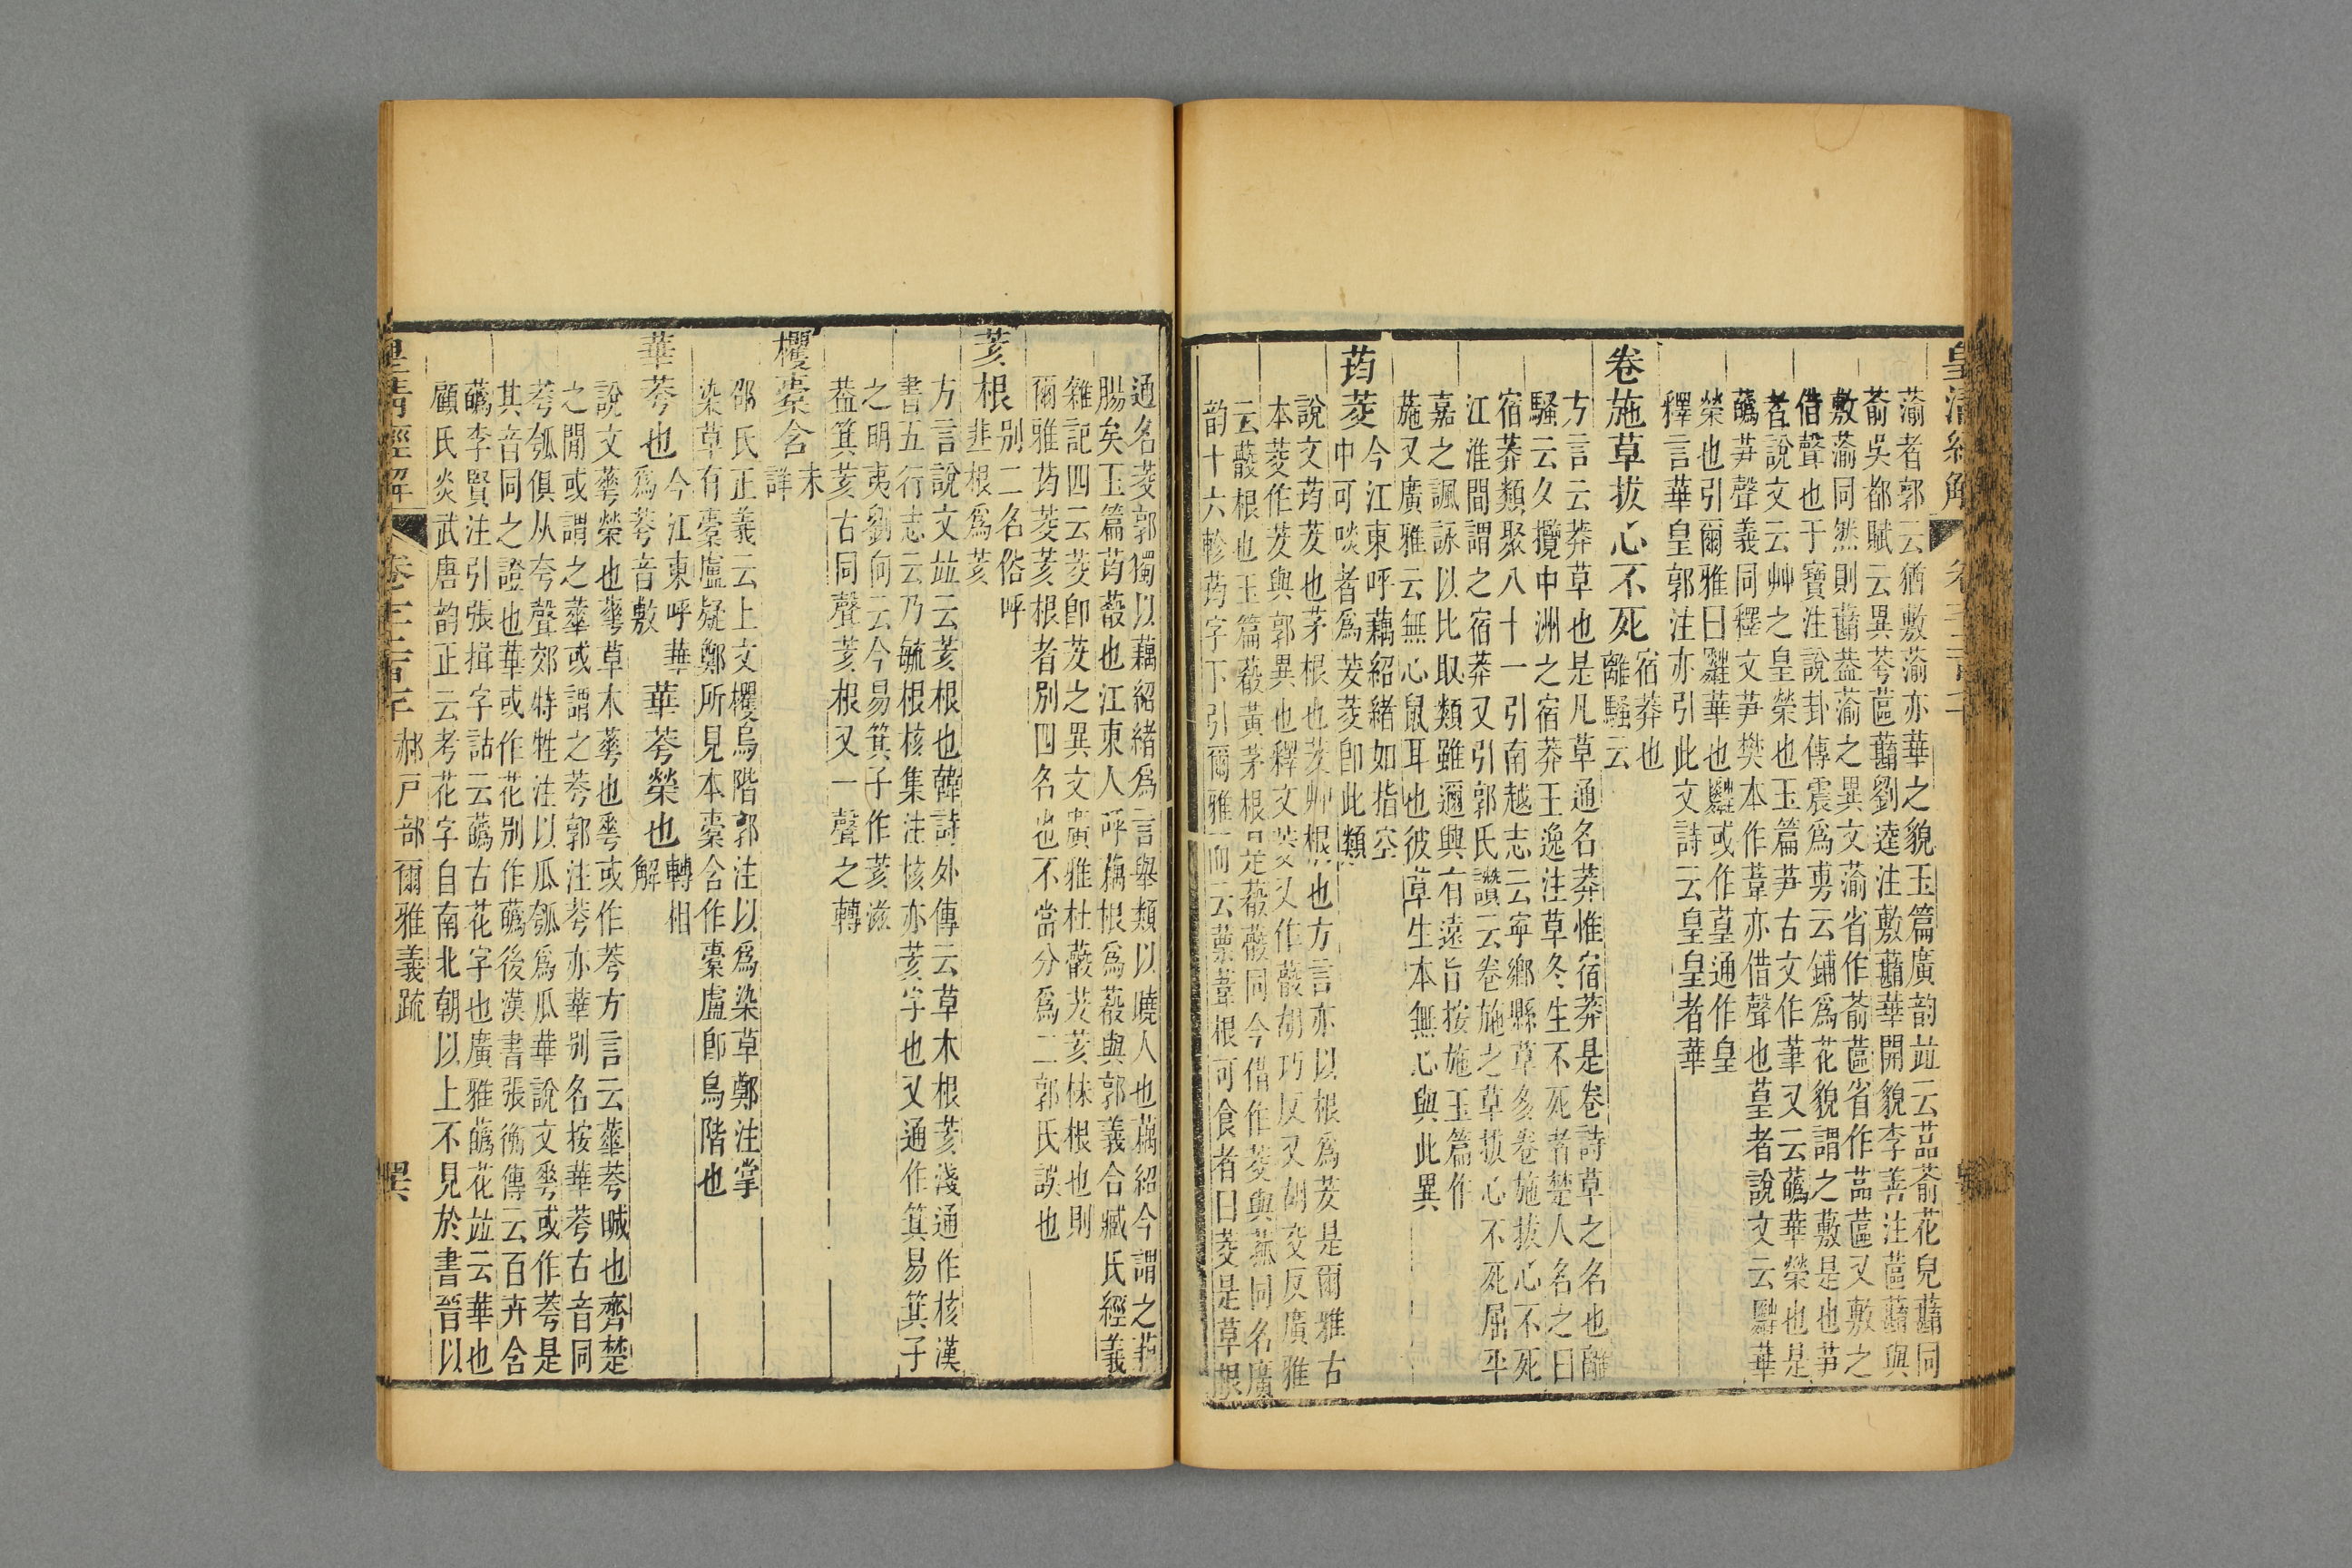 皇清經解 卷千二百七十
蕍者郭云猶敷蕍亦華之貌玉篇廣韵竝云蒟葥花皃蘛同
葥吳都賦云異荂蓲蘛劉逵注敷蘛華開貌李善注蓲蘛與
敷蕍同然則蘛葢蕍之異文蕍省作葥蓲省作蒟蓲又敷之
借聲也于寶注說卦傳震爲旉云鋪爲花貌謂之藪是也芛
者說文云艸之皇榮也玉篇芛古文作荲又云蘤華榮也是
蘤芛聲義同釋文芛樊本作葦亦借聲也葟者說文云䑞華
榮也引爾雅曰䑞華也䑞或作葟通作皇
釋言華皇郭注亦引此文詩云皇皇者華
卷施草拔心不死 宿莽也
離騷云
方言云莽草也是凡草通名莽惟宿莽是卷詩草之名也離
騷云夕攬中洲之宿莽王逸注草冬生不死者楚人名之曰
宿莽類聚八十一引南越志云寧鄉縣草多卷施拔心不死
江淮間謂之宿莽又引郭氏讚云卷施之草拔心不死屈平
嘉之諷詠以比取類雖邇興有遠旨按施玉篇作
葹又廣雅云無心鼠耳也彼草生本無心與此異
荺茭 今江東呼藕紹緒如指空
中可啖者爲茇茭卽此類
說文荺茇也茅根也茇艸根也方言亦以根爲茇是爾雅古
本茭作茇與郭異也釋文茭又作藃胡巧反又胡交反廣雅
云藃根也玉篇䕅黃茅根是䕅藃同今借作茭與䕅同名廣
韵十六軫荺字下引爾雅而云蘽葦根可食者曰茭是草根
通名茭郭獨以藕紹緒爲言舉類以曉人也藕紹今謂之藕
腸矣玉篇荺䕅也江東人呼藕根爲䕅與郭義合臧氏經義
雜記四云茭卽茇之異文廣雅杜藃茇荄株根也則
爾雅荺茭荄根者別四名也不當分爲二郭氏誤也
荄根 別二名俗呼
韭根爲荄
方言說文竝云荄根也韓詩外傳云草木根荄淺通作核漢
書五行志云乃毓根核集注核亦荄字也又通作箕易箕子
之明夷劉向云今易箕子作荄滋
葢箕荄古同聲荄根又一聲之轉
欔橐含 未
詳
邵氏正義云上文欔烏階郭注以爲染草鄭注掌
染草有橐盧疑鄭所見本橐含作橐盧卽烏階也
華荂也 今江東呼華
爲荂音敷
華荂榮也 轉相
解
說文蕚榮也蕚草木蕚也𠌶或作荂方言云蕚荂晠也齊楚
之閒或謂之蕚或謂之荂郭注荂亦華別名按華荂古音同
荂瓠俱从夸聲郊特牲注以瓜瓠爲瓜華說文𠌶或作荂是
其音同之證也華或作花別作蘤後漢書張衡傳云百卉含
蘤李賢注引張揖字詁云蘤古花字也廣雅蘤花竝云華也
顧氏炎武唐韵正云考花字自南北朝以上不見於書晉以
皇清經解 卷千二百七十 郝戶部爾雅義疏